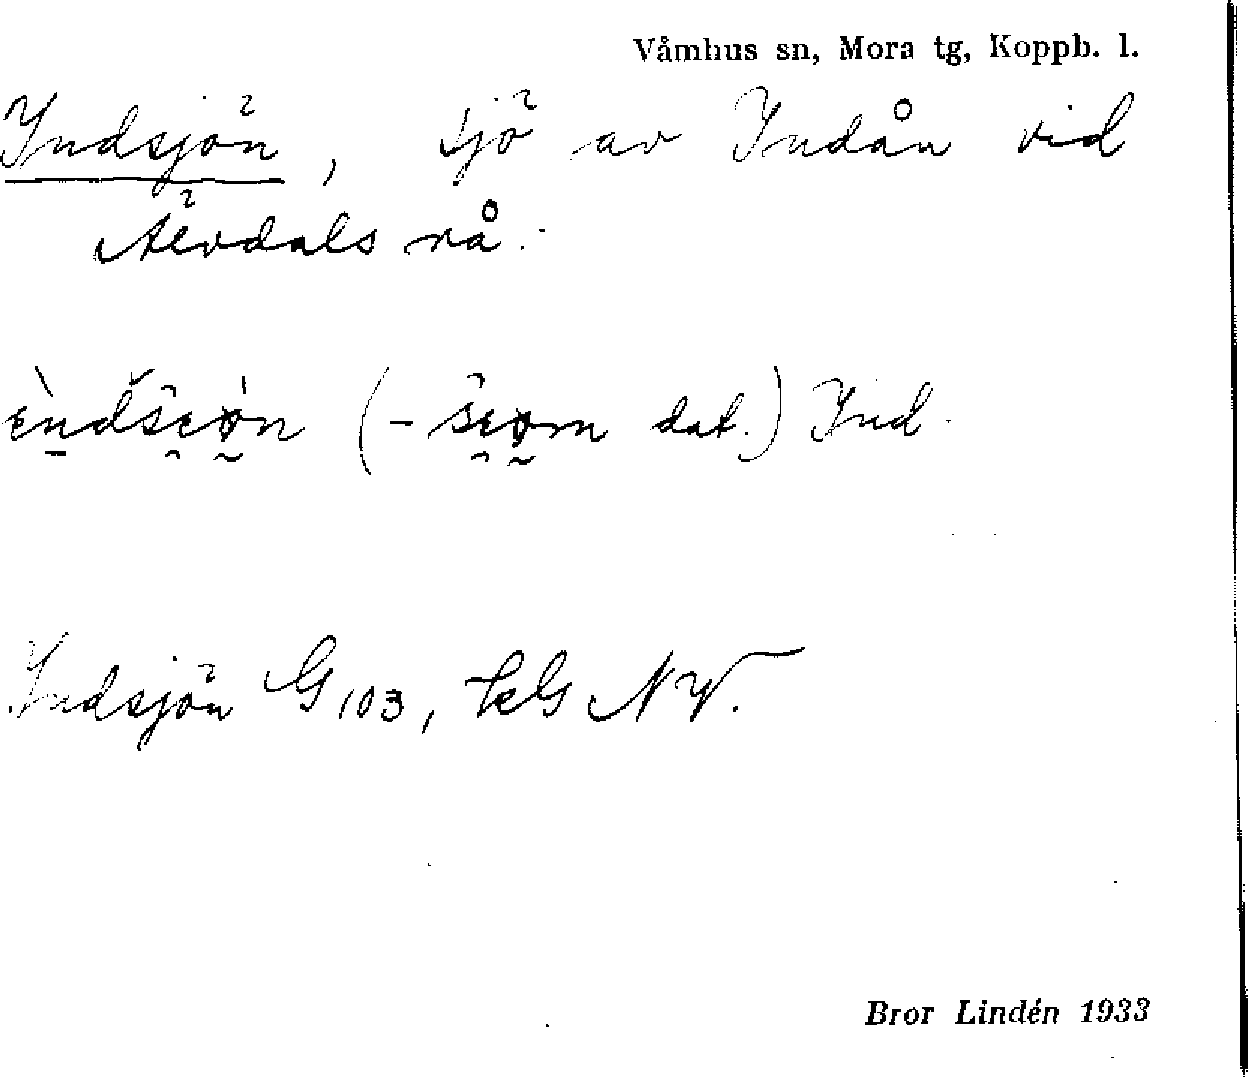 Våmhus sn, Mora tg, Koppb. l.
Indsjön, sjö av Indån vid
Älvdals rå.
(- dat.) Ind.
Indsjön G 103, NV.
Bror Lindén 1933